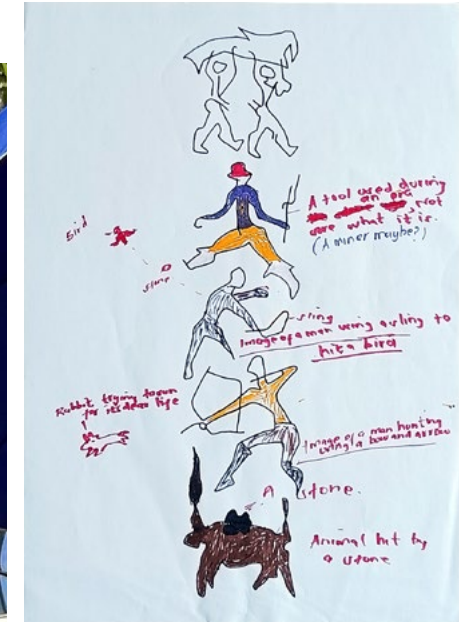 A tool used during
an era, Not
sure what it is.
(A miner maybe?)
bird
stone
sling
Image of a man using a sling to
hit a bird
Rabbit trying to run
for its dear life
Image of a man hunting
using a bow and arrow
A stone.
Animal hit by
a stone